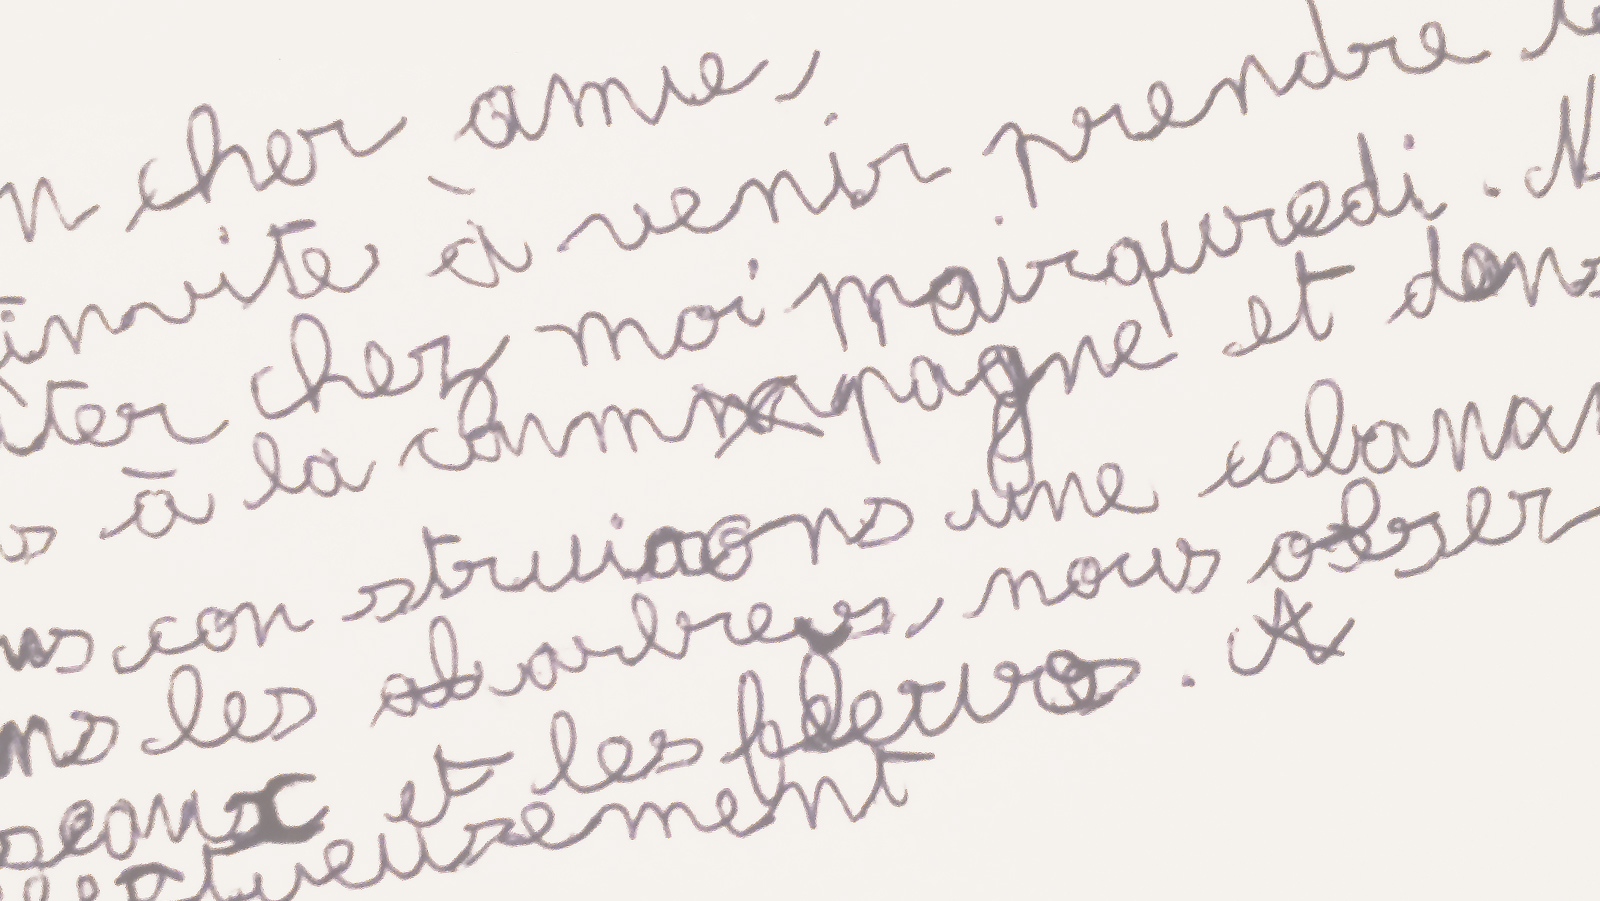 n cher amie,
invite à venir prendre le
ter chez moi mairquredi. N
s à la commpagne et dans
ns con struisons une cabanan
ns les arbres, nous obser
seaux et les fleurs. A
ectueusement